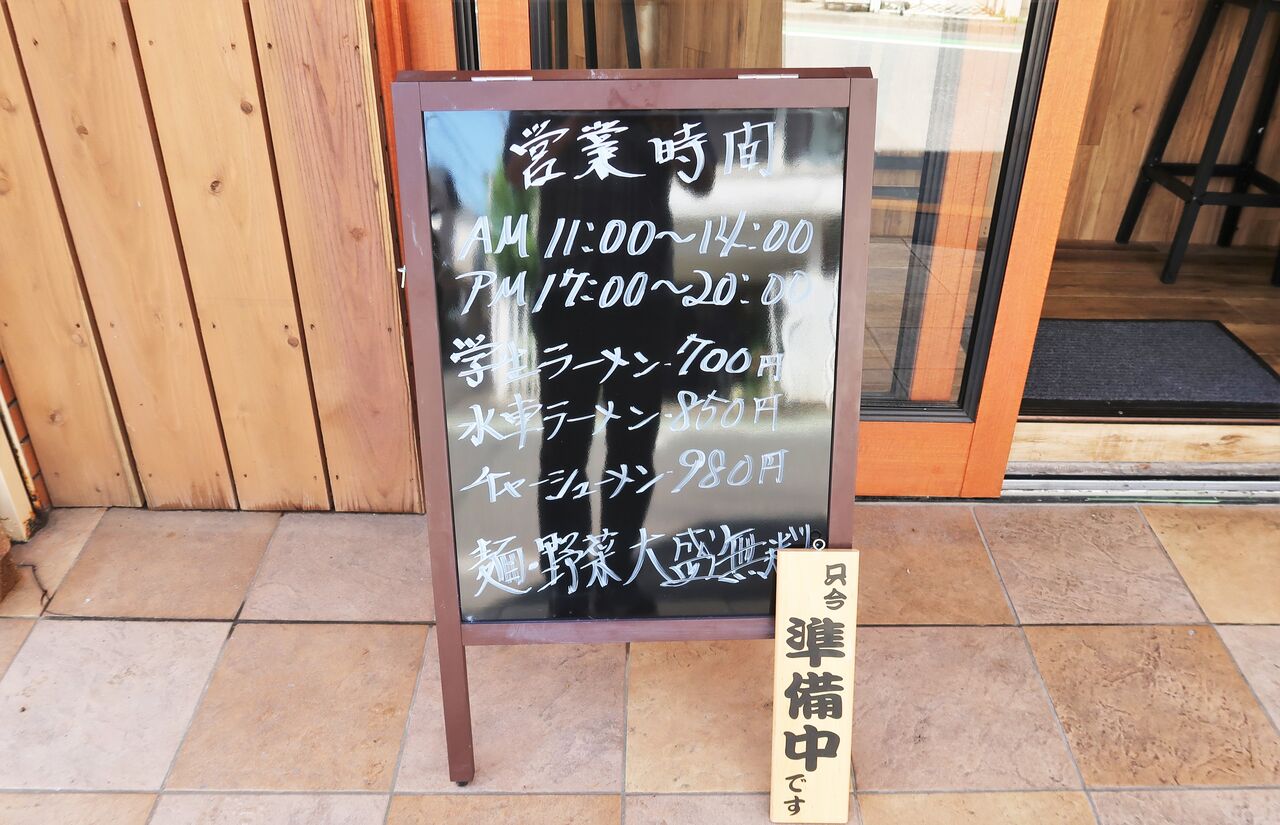 営業時間
AM 11:00〜14:00
PM 17:00〜20:00
学生ラーメン-700円
水車ラーメン-850円
チャーシューメン-980円
麺・野菜大盛無料
只今
準備中
です